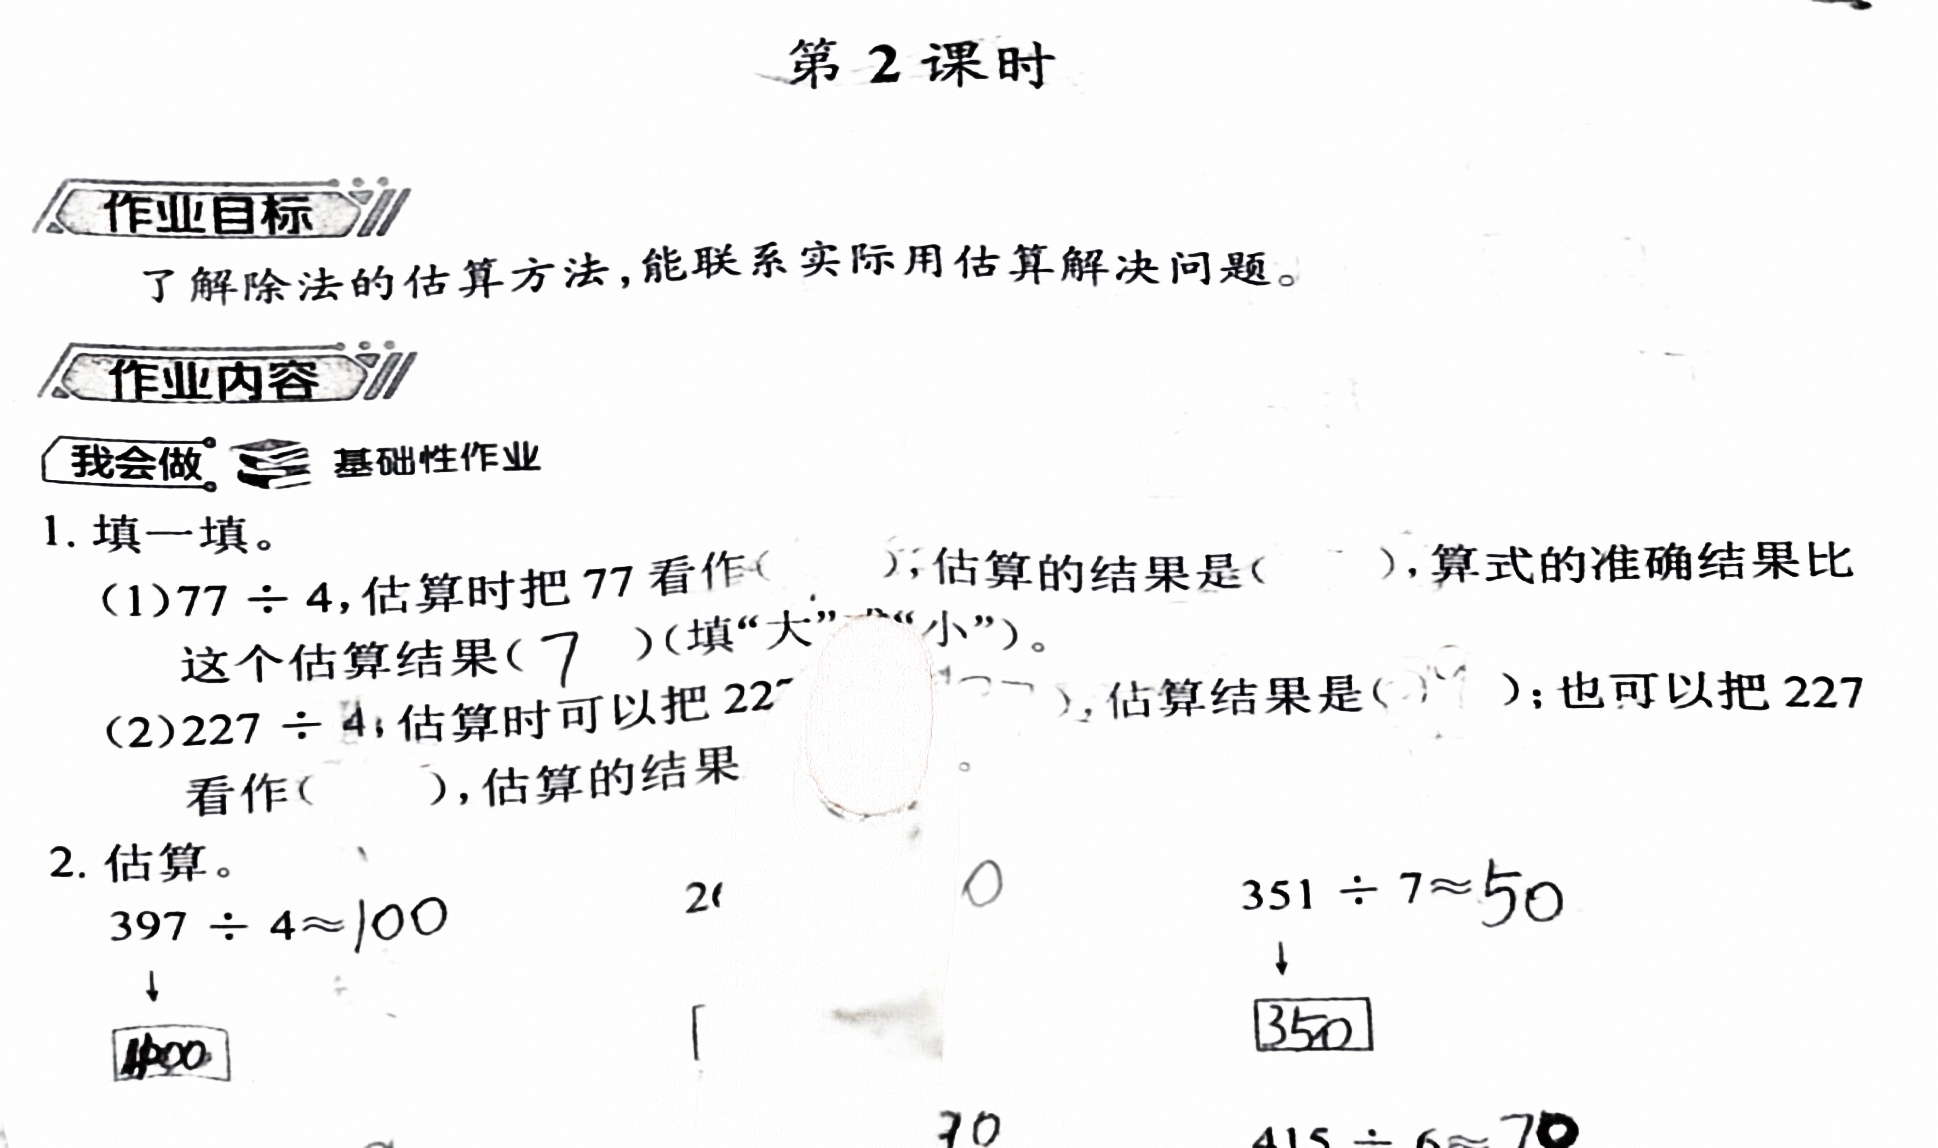 第 2 课时
作业目标
了解除法的估算方法,能联系实际用估算解决问题。
作业内容
我会做 基础性作业
1. 填一填。
(1)77 ÷ 4,估算时把 77 看作( ),估算的结果是( ),算式的准确结果比
这个估算结果( 7 )(填“大” “小”)。
(2)227 ÷ 4,估算时可以把 22 ),估算结果是( );也可以把 227
看作( ),估算的结果 。
2. 估算。
397 ÷ 4≈100 2 0 351 ÷ 7≈50
↓ ↓
400 350
70 415 ÷ 6≈70